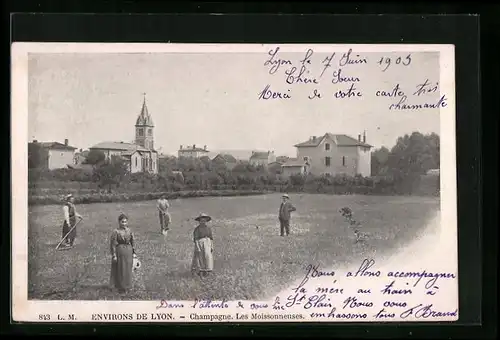 Lyon le 7 Juin 1905
Chère Sœur
Merci de votre carte très
charmante
Nous allons accompagner
la mère au train à
St Clair. Nous vous
embrassons tous
Dans l'attente de vous lire
813 L. M. ENVIRONS DE LYON. - Champagne. Les Moissonneuses.